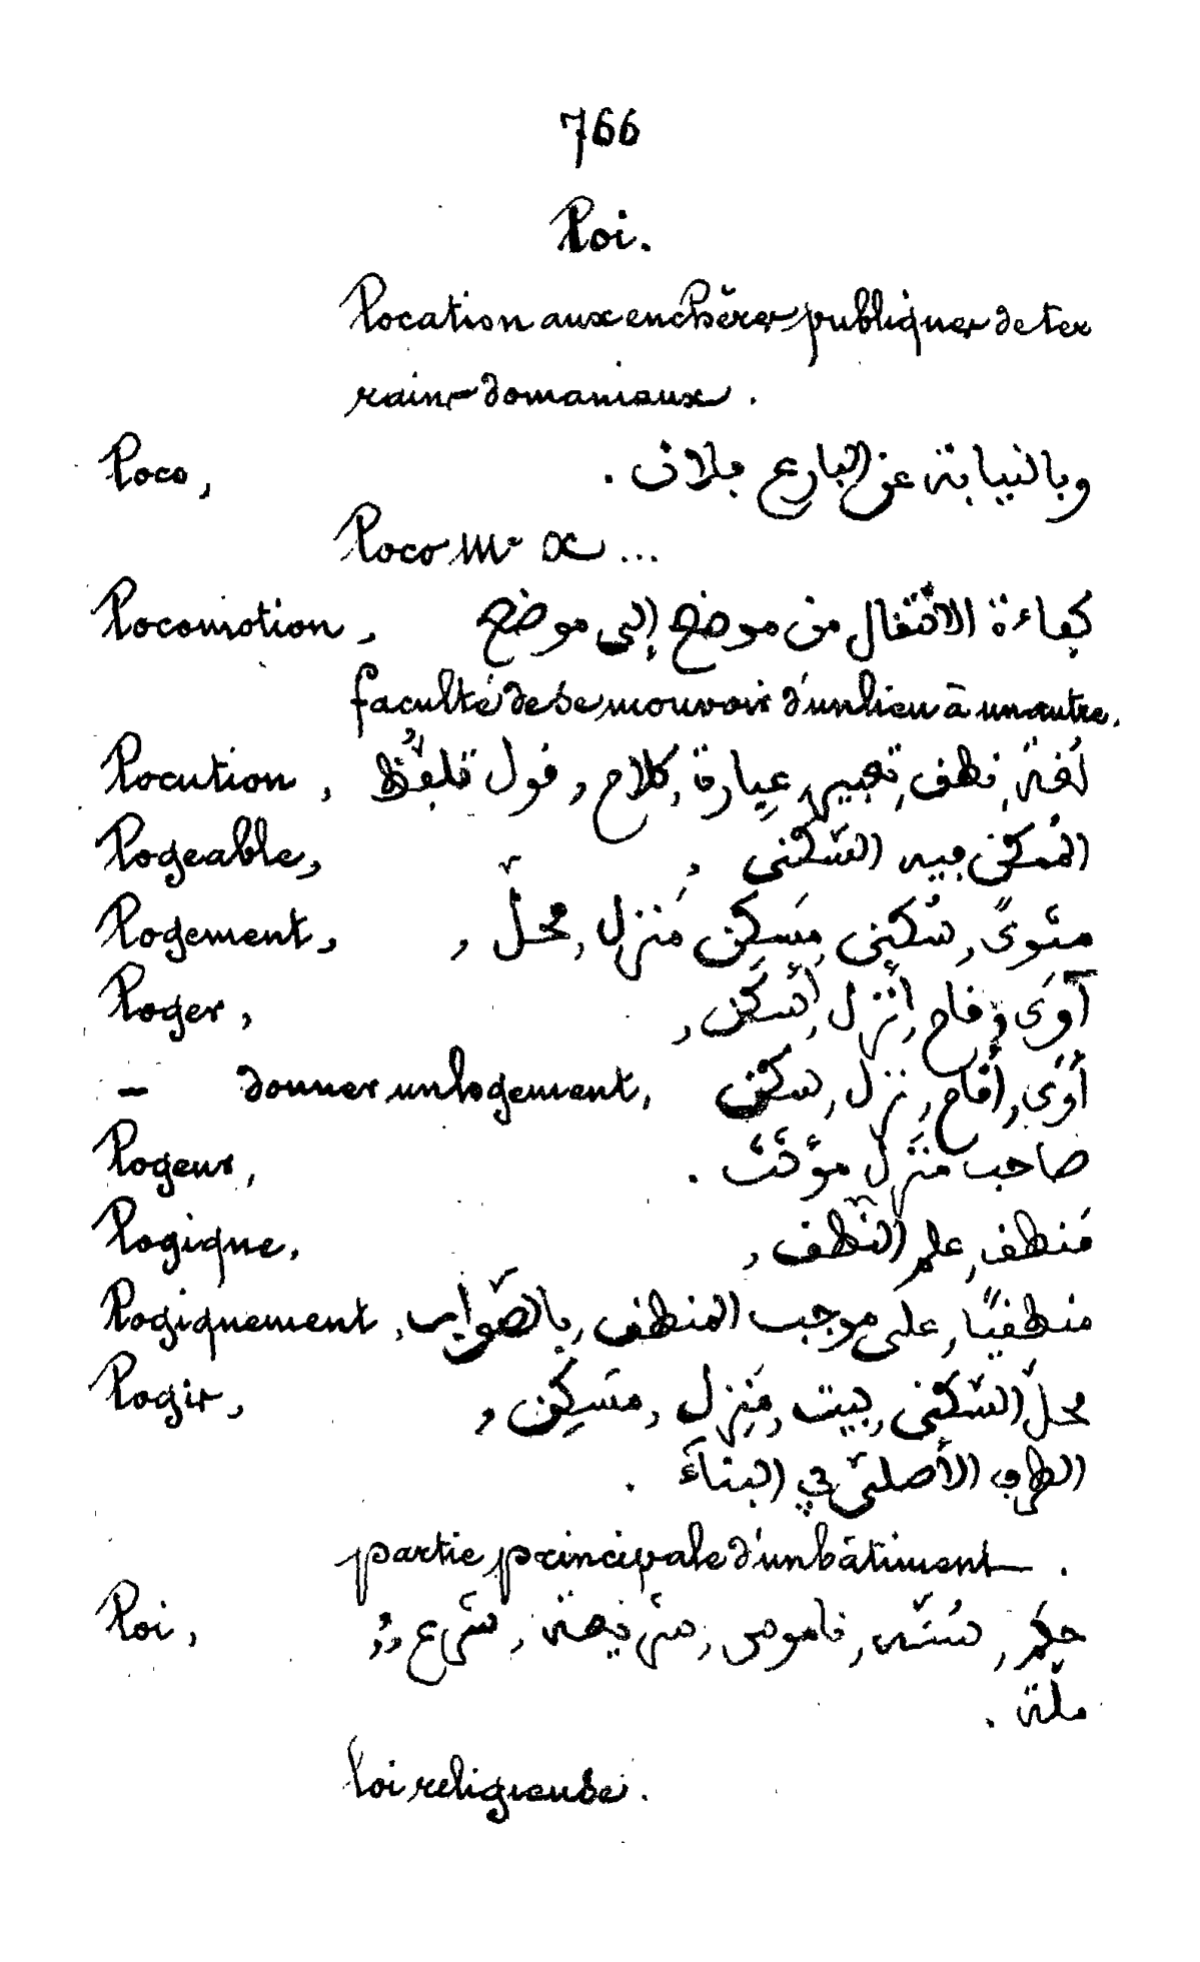 766
Loi.
Location aux enchères publiques de ter
rains domaniaux.
Loco, وبالنيابة عن البارع فلان.
Loco Mr X...
Locomotion, كفاءة الانتقال من موضع إلى موضع
faculté de se mouvoir d'un lieu à un autre.
Locution, لغة, نطق, تعبير, عبارة, كلام, قول تلفُّظ
Logeable, الممكن فيه السّكنى,
Logement, مثوىً, سُكنى, مَسكِن, مَنزل, محلّ,
Loger, آوَى, وقام, أنزل, أَسكَن,
— donner un logement, أوَّى, أقام, نزل, سكن
Logeur, صاحب مَنزل موَّثّث.
Logique, مَنطق, علم النّطق,
Logiquement, منطقيًّا, على موجب المنطق, بالصّواب,
Logis, محلّ السّكنى, بيت, مَنزِل, مَسكِن,
الطرف الأصلىّ في البنآء.
partie principale d'un bâtiment.
Loi, حكم, سُنّة, ناموس, شريعة, شرع,
ملّة.
loi religieuse.